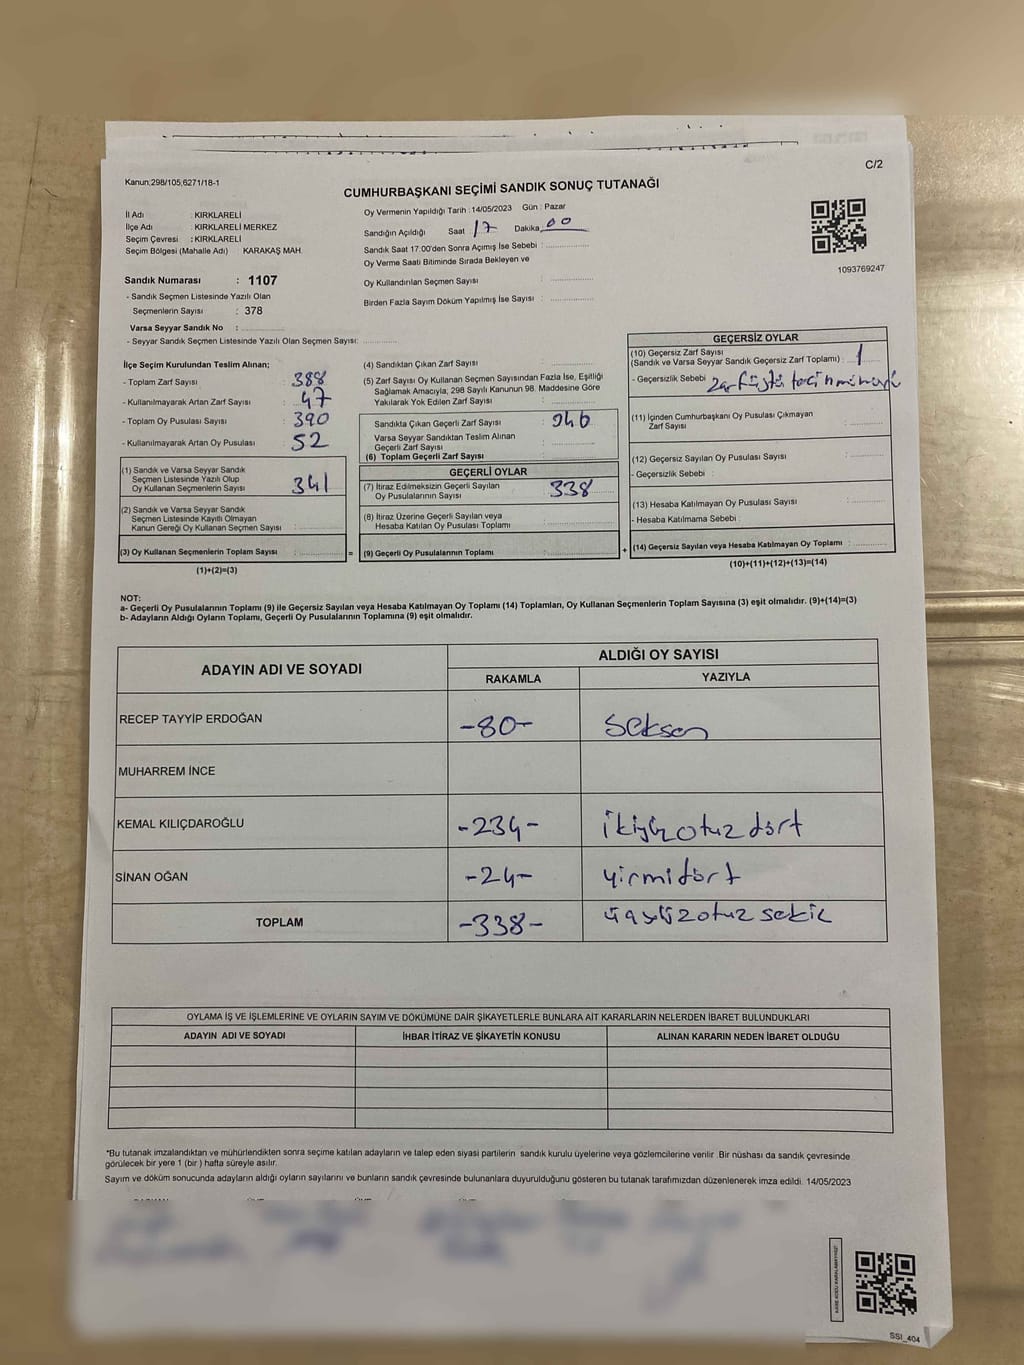 C/2
Kanun;298/105,6271/18-1
CUMHURBAŞKANI SEÇİMİ SANDIK SONUÇ TUTANAĞI
İl Adı : KIRKLARELİ
İlçe Adı : KIRKLARELİ MERKEZ
Seçim Çevresi : KIRKLARELİ
Seçim Bölgesi (Mahalle Adı) KARAKAŞ MAH.
Oy Vermenin Yapıldığı Tarih : 14/05/2023 Gün : Pazar
Sandığın Açıldığı Saat 17 Dakika 00
Sandık Saat 17:00'den Sonra Açımış İse Sebebi :
Oy Verme Saati Bitiminde Sırada Bekleyen ve
Oy Kullandırılan Seçmen Sayısı :
Birden Fazla Sayım Döküm Yapılmış İse Sayısı :
1093769247
Sandık Numarası : 1107
- Sandık Seçmen Listesinde Yazılı Olan
Seçmenlerin Sayısı : 378
Varsa Seyyar Sandık No :
- Seyyar Sandık Seçmen Listesinde Yazılı Olan Seçmen Sayısı:
İlçe Seçim Kurulundan Teslim Alınan;
- Toplam Zarf Sayısı : 388
- Kullanılmayarak Artan Zarf Sayısı : 47
- Toplam Oy Pusulası Sayısı : 390
- Kullanılmayarak Artan Oy Pusulası : 52
(1) Sandık ve Varsa Seyyar Sandık
Seçmen Listesinde Yazılı Olup
Oy Kullanan Seçmenlerin Sayısı : 341
(2) Sandık ve Varsa Seyyar Sandık
Seçmen Listesinde Kayıtlı Olmayan
Kanun Gereği Oy Kullanan Seçmen Sayısı :
(3) Oy Kullanan Seçmenlerin Toplam Sayısı : =
(1)+(2)=(3)
(4) Sandıktan Çıkan Zarf Sayısı :
(5) Zarf Sayısı Oy Kullanan Seçmen Sayısından Fazla İse, Eşitliği
Sağlamak Amacıyla; 298 Sayılı Kanunun 98. Maddesine Göre
Yakılarak Yok Edilen Zarf Sayısı :
Sandıkta Çıkan Geçerli Zarf Sayısı :
Varsa Seyyar Sandıktan Teslim Alınan
Geçerli Zarf Sayısı :
(6) Toplam Geçerli Zarf Sayısı :
GEÇERLİ OYLAR
(7) İtiraz Edilmeksizin Geçerli Sayılan
Oy Pusulalarının Sayısı : 338
(8) İtiraz Üzerine Geçerli Sayılan veya
Hesaba Katılan Oy Pusulası Toplamı :
(9) Geçerli Oy Pusulalarının Toplamı : +
GEÇERSİZ OYLAR
(10) Geçersiz Zarf Sayısı
(Sandık ve Varsa Seyyar Sandık Geçersiz Zarf Toplamı) : 1
- Geçersizlik Sebebi :
(11) İçinden Cumhurbaşkanı Oy Pusulası Çıkmayan
Zarf Sayısı :
(12) Geçersiz Sayılan Oy Pusulası Sayısı :
- Geçersizlik Sebebi :
(13) Hesaba Katılmayan Oy Pusulası Sayısı :
- Hesaba Katılmama Sebebi :
(14) Geçersiz Sayılan veya Hesaba Katılmayan Oy Toplamı :
(10)+(11)+(12)+(13)=(14)
NOT:
a- Geçerli Oy Pusulalarının Toplamı (9) ile Geçersiz Sayılan veya Hesaba Katılmayan Oy Toplamı (14) Toplamları, Oy Kullanan Seçmenlerin Toplam Sayısına (3) eşit olmalıdır. (9)+(14)=(3)
b- Adayların Aldığı Oyların Toplamı, Geçerli Oy Pusulalarının Toplamına (9) eşit olmalıdır.
ADAYIN ADI VE SOYADI
ALDIĞI OY SAYISI
RAKAMLA YAZIYLA
RECEP TAYYİP ERDOĞAN -80- Seksen
MUHARREM İNCE
KEMAL KILIÇDAROĞLU -234- ikiyüzotuzdört
SİNAN OĞAN -24- yirmidört
TOPLAM -338- üçyüzotuzsekiz
OYLAMA İŞ VE İŞLEMLERİNE VE OYLARIN SAYIM VE DÖKÜMÜNE DAİR ŞİKAYETLERLE BUNLARA AİT KARARLARIN NELERDEN İBARET BULUNDUKLARI
ADAYIN ADI VE SOYADI İHBAR İTİRAZ VE ŞİKAYETİN KONUSU ALINAN KARARIN NEDEN İBARET OLDUĞU
*Bu tutanak imzalandıktan ve mühürlendikten sonra seçime katılan adayların ve talep eden siyasi partilerin sandık kurulu üyelerine veya gözlemcilerine verilir .Bir nüshası da sandık çevresinde
görülecek bir yere 1 (bir ) hafta süreyle asılır.
Sayım ve döküm sonucunda adayların aldığı oyların sayılarını ve bunların sandık çevresinde bulunanlara duyurulduğunu gösteren bu tutanak tarafımızdan düzenlenerek imza edildi. 14/05/2023
KARE KODU KARALAMAYINIZ!
SSI_404